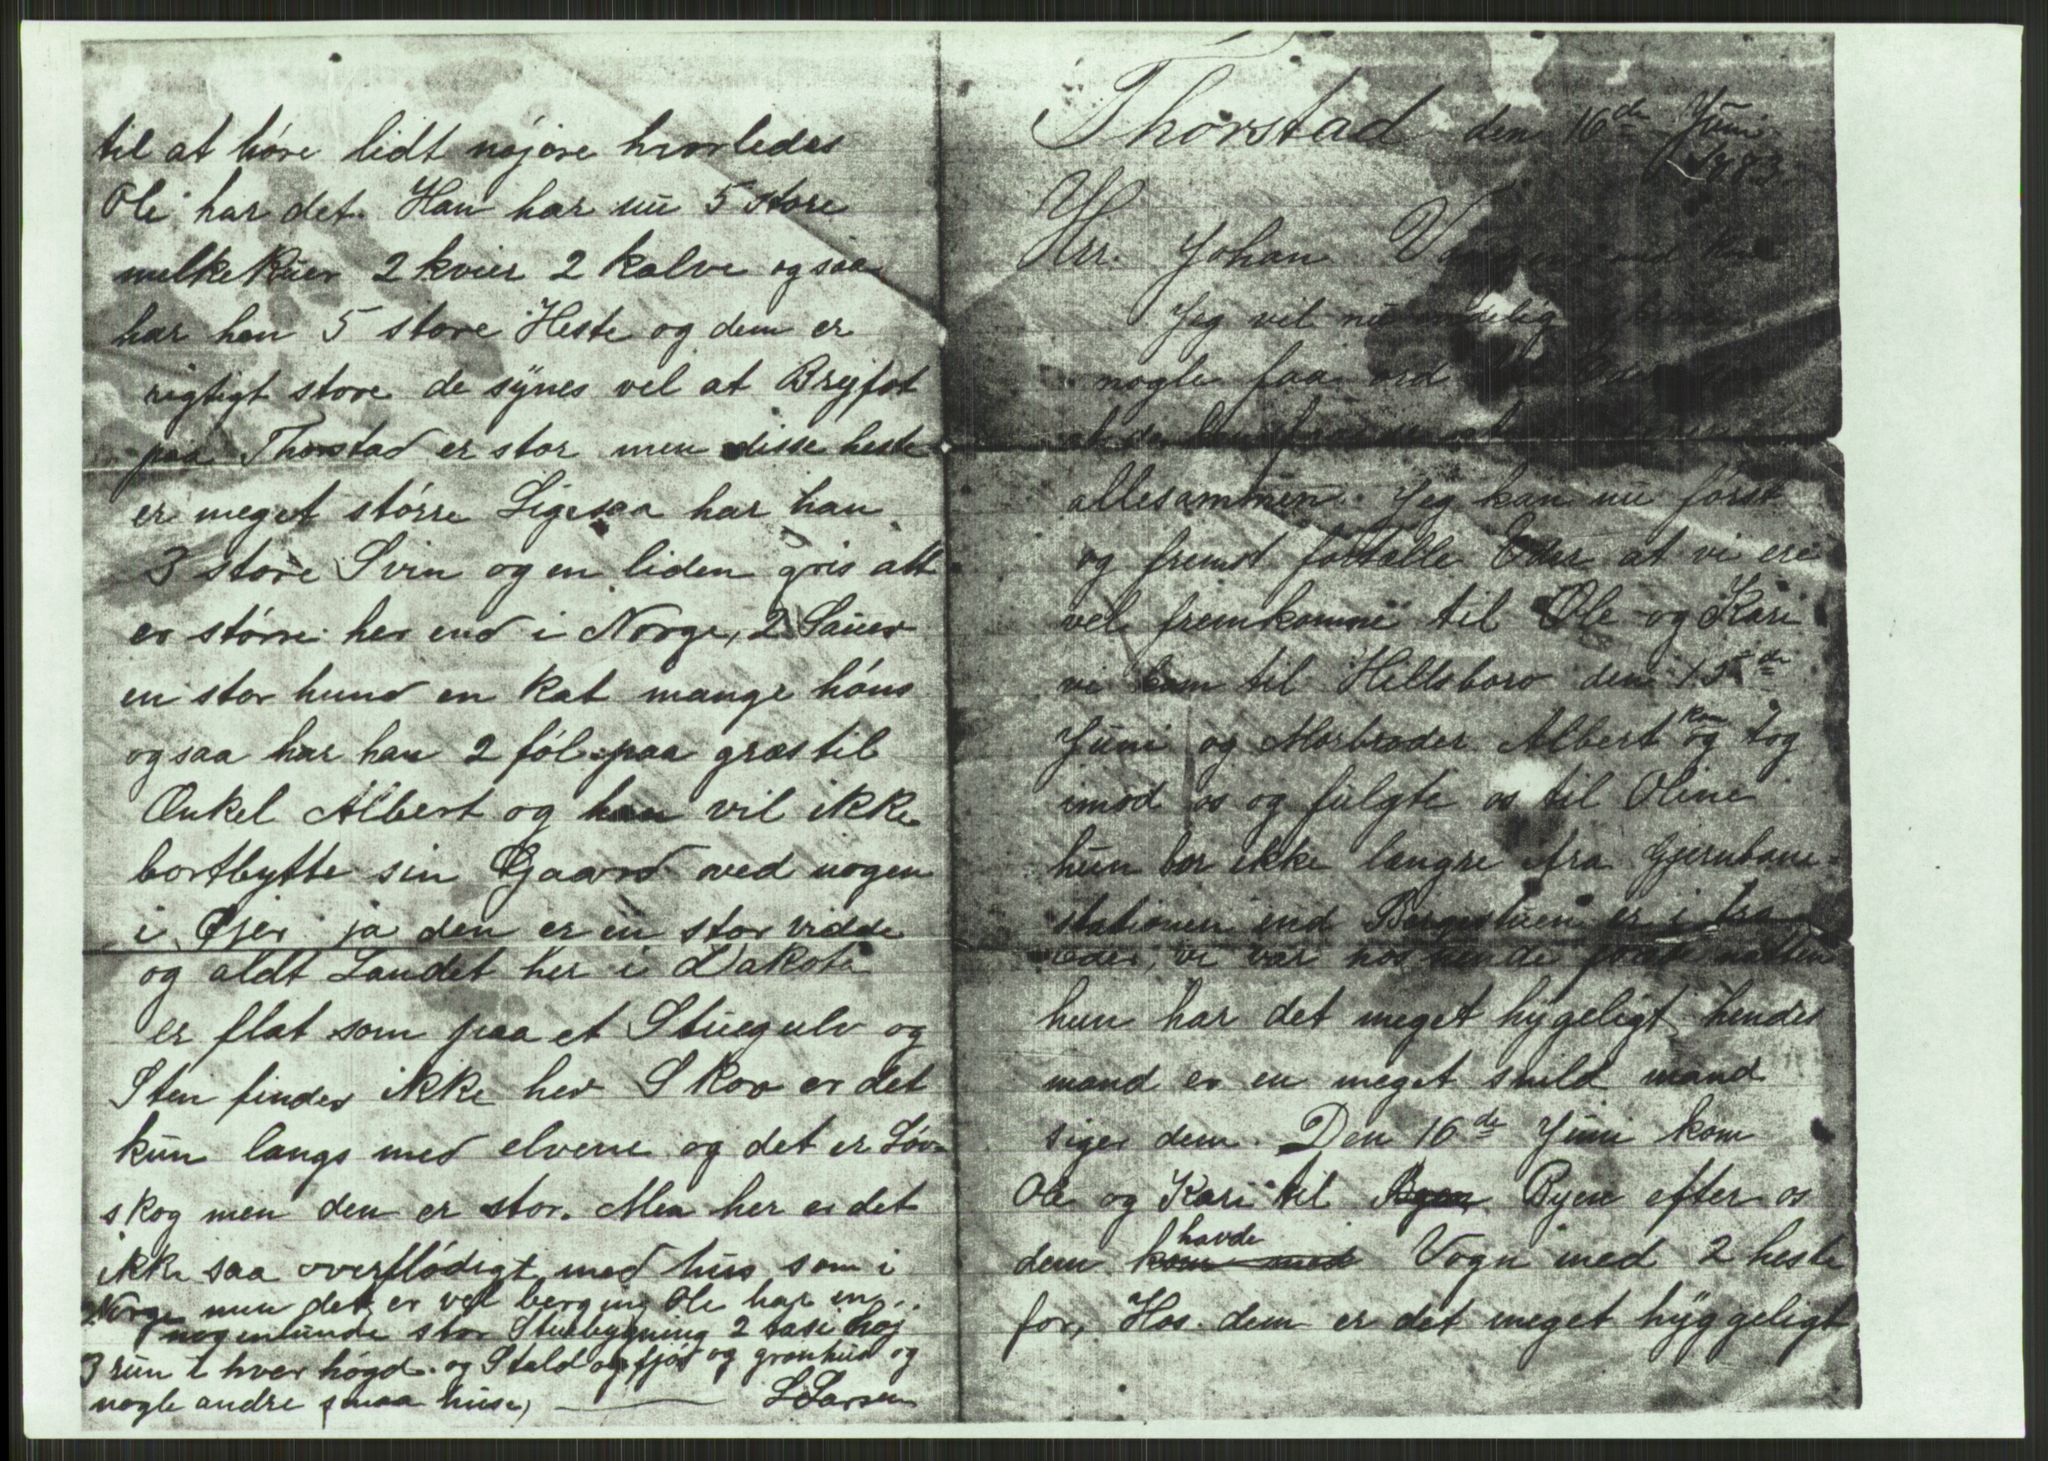 Thorstad den 16de Juni
1883.
Hrr. Johan
Jeg vil nu
nogle faa ord
allesammen. Jeg kan nu først
og fremst fortælle Eder at vi ere
vel fremkomne til Ole og Kari
vi kom til Hillsboro den 15de
Juni og Morbroder Albert kom og tog
imod os og fulgte os til Oline
hun bor ikke længre fra Gjernbane-
stationen end Bergestuen er i fra
Eder, vi var hos hende første natten
hun har det meget hygeligt hendes
mand er en meget snild mand
siger dem. Den 16de Juni kom
Ole og Kari til Byen Byen efter os
dem kom med havde Vogn med 2 heste
for, Hos dem er det meget hyggeligt
til at høre lidt nøjere hvorledes
Ole har det. Han har nu 5 store
melkekuer 2 kvier 2 kalve ogsaa
har han 5 store Heste og dem er
rigtigt store de synes vel at Brejfot
paa Thorstad er stor men disse heste
er meget større Ligesaa har han
3 store Svin og en liden gris alt
er større her end i Norge, 2 Sauer
en stor hund en kat mange høns
ogsaa har han 2 føl paa græs til
Onkel Albert og han vil ikke
bortbytte sin Gaard med nogen
i Øjer ja den er en stor vidde
og aldt Landet her i Dakota
er flat som paa et Stuegulv og
Sten findes ikke her Skov er det
kun langs med elvene og det er Løv-
skog men den er stor. Men her er det
ikke saa overflødigt med hus som i
Norge men det er vel berging Ole har en
nogenlunde stor Stuebygning 2 tase høj
3 rum i hver høgd og Stald og fjøs og grønhus og
nogle andre smaa huse, L Larsen